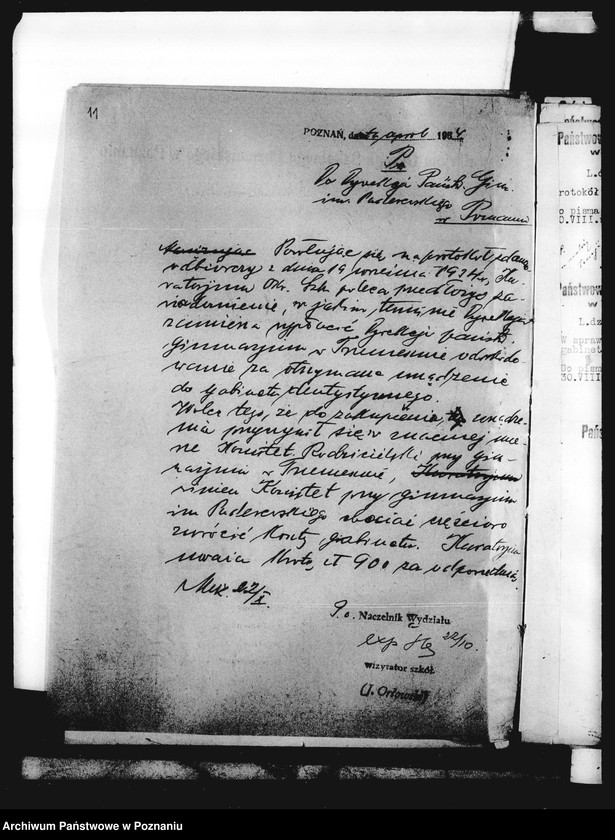 11
POZNAŃ, dnia 193
Do Dyrekcji Państw. Gim.
im. Paderewskiego
w Poznaniu
Powołując się na protokół zdawczo
odbiorczy z dnia 19 września 1934 r., Ku-
ratorjum Okr. Szk. poleca przedłożyć za-
wiadomienie, w jakim terminie Dyrekcja
zamierza wypłacić Dyrekcji państw.
gimnazjum w Trzemesznie odszkodo-
wanie za otrzymane urządzenie
do gabinetu dentystycznego.
Wobec tego, że do zakupienia urządze-
nia przyczynił się w znacznej mie-
rze Komitet Rodzicielski przy gim-
nazjum w Trzemesznie, Kuratorjum
winien Komitet przy gimnazjum
im. Paderewskiego chociaż częściowo
zwrócić koszty gabinetu. Kuratorjum
uważa kwotę zł 900 za odpowiednią.
22/X.
p. o. Naczelnik Wydziału
22/10.
wizytator szkół.
(J. Orłowski)
Państwow
w
L.d
protokół
o pisma
Państwow
w
L.dz
W spraw
gabinet
Do pism
30.VIII
Pań
Archiwum Państwowe w Poznaniu